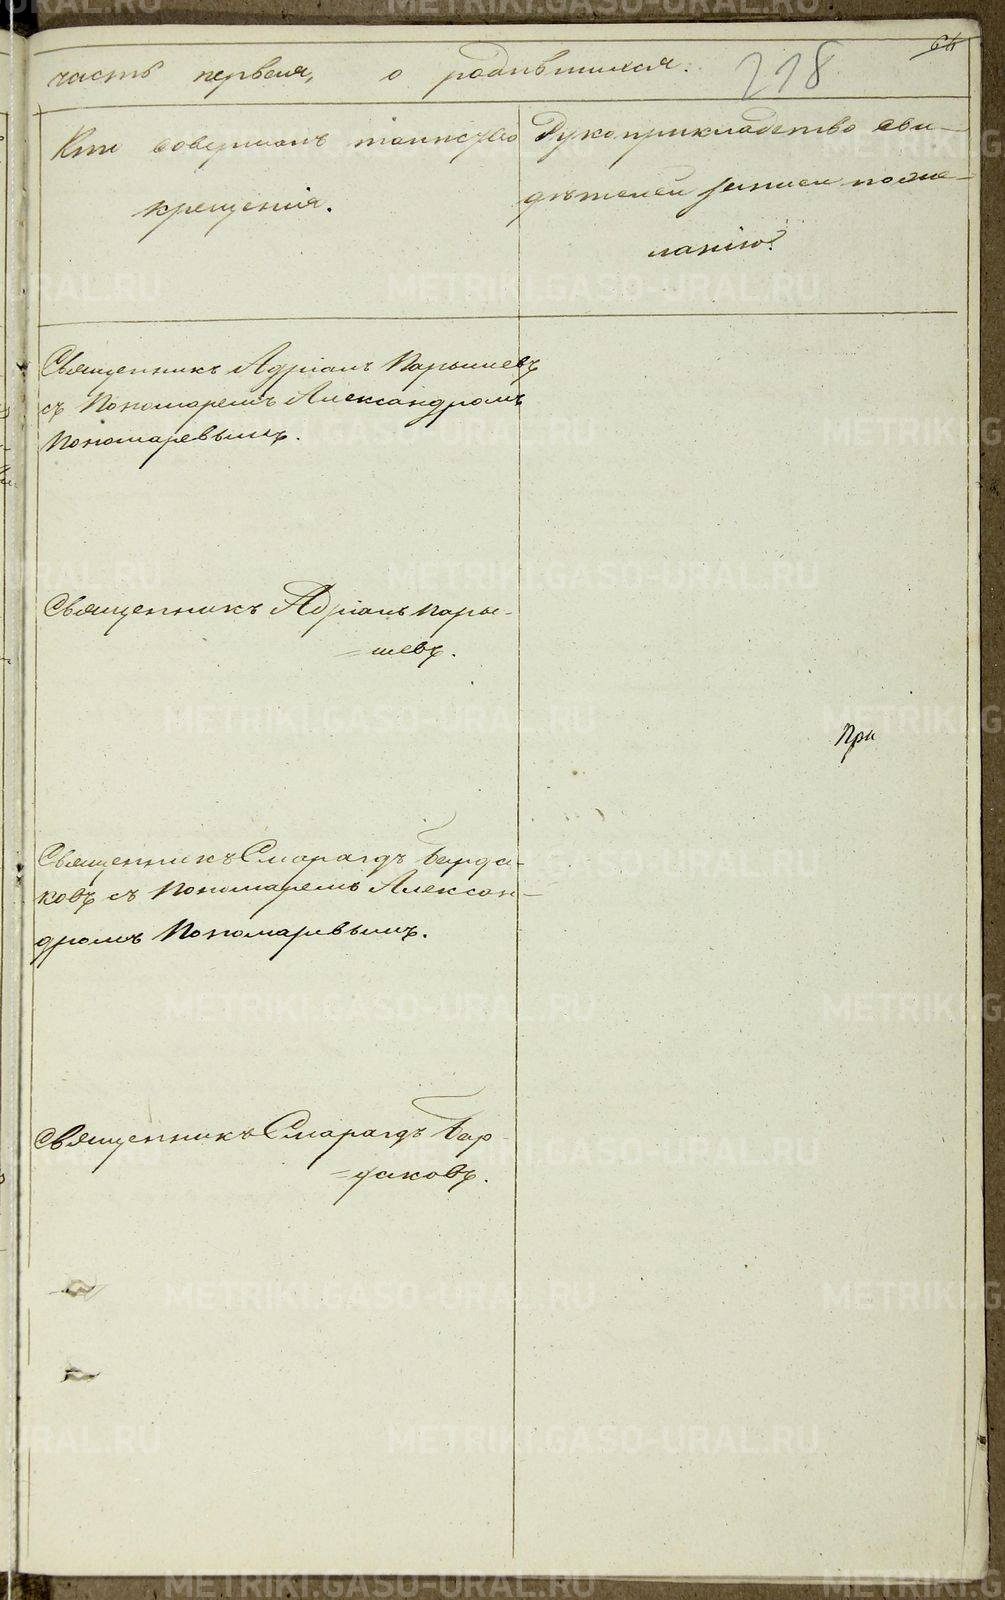 часть первая, о родившихся.
218
64
Кто совершалъ таинство
крещенія.
Рукоприкладство сви-
дѣтелей записи по же-
ланію.
Священникъ Адріанъ Парышевъ
съ Пономаремъ Александромъ
Пономаревымъ.
Священникъ Адріанъ Пары-
=шевъ.
При
Священникъ Смарагдъ Барда-
ковъ съ Пономаремъ Алексан-
дромъ Пономаревымъ.
Священникъ Смарагдъ Бар-
=даковъ.
METRIKI.GASO-URAL.RU